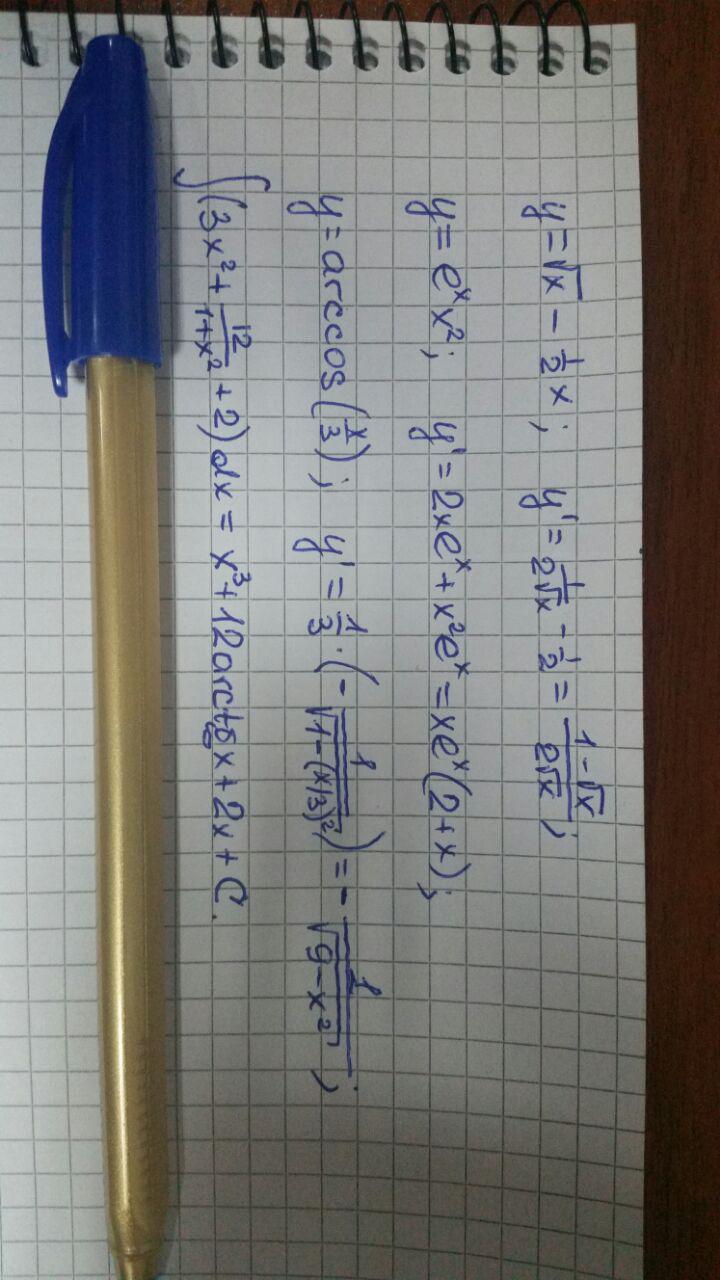 y = √x − 1/2 x; y' = 1/(2√x) − 1/2 = (1−√x)/(2√x);
y = eˣx²; y' = 2xeˣ + x²eˣ = xeˣ(2+x);
y = arccos(x/3); y' = 1/3 · (− 1/√(1−(x/3)²)) = − 1/√(9−x²);
∫(3x² + 12/(1+x²) + 2)dx = x³ + 12arctgx + 2x + C.